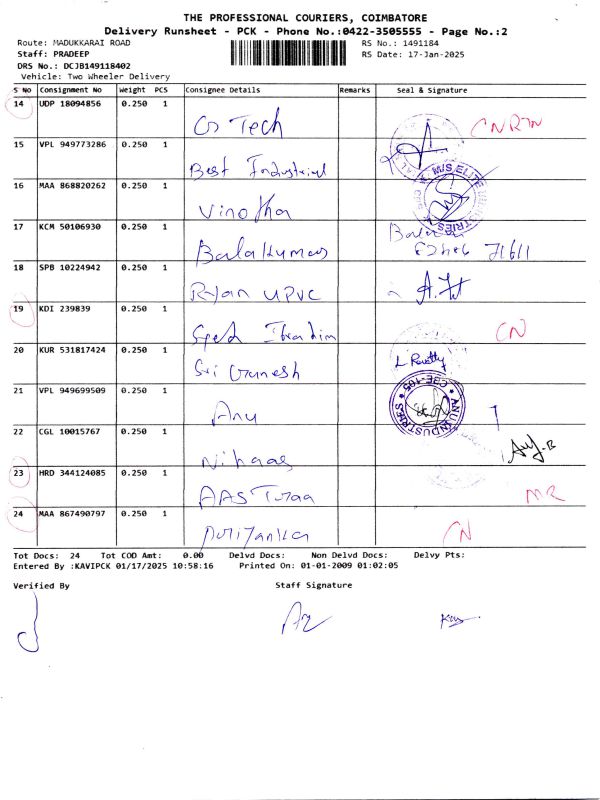 THE PROFESSIONAL COURIERS, COIMBATORE
Delivery Runsheet - PCK - Phone No.:0422-3505555 - Page No.:2
Route: MADUKKARAI ROAD RS No.: 1491184
Staff: PRADEEP RS Date: 17-Jan-2025
DRS No.: DCJB149118402
Vehicle: Two Wheeler Delivery
S No Consignment No Weight PCS Consignee Details Remarks Seal & Signature
14 UDP 18094856 0.250 1
Tech CNRTN
15 VPL 949773286 0.250 1
Best Industrial
16 MAA 868820262 0.250 1
Vinotha M/S.ELITE INDUSTRIES
17 KCM 50106930 0.250 1
Balakumar 71611
18 SPB 10224942 0.250 1
Ryan UPVC
19 KDI 239839 0.250 1
Syed Ibrahim CN
20 KUR 531817424 0.250 1
Sri Ganesh
21 VPL 949699509 0.250 1
Anu ANU INDUSTRIES CBE-105
22 CGL 10015767 0.250 1
Nihaas
23 HRD 344124085 0.250 1
AAS MR
24 MAA 867490797 0.250 1
Priyanka CN
Tot Docs: 24 Tot COD Amt: 0.00 Delvd Docs: Non Delvd Docs: Delvy Pts:
Entered By :KAVIPCK 01/17/2025 10:58:16 Printed On: 01-01-2009 01:02:05
Verified By Staff Signature